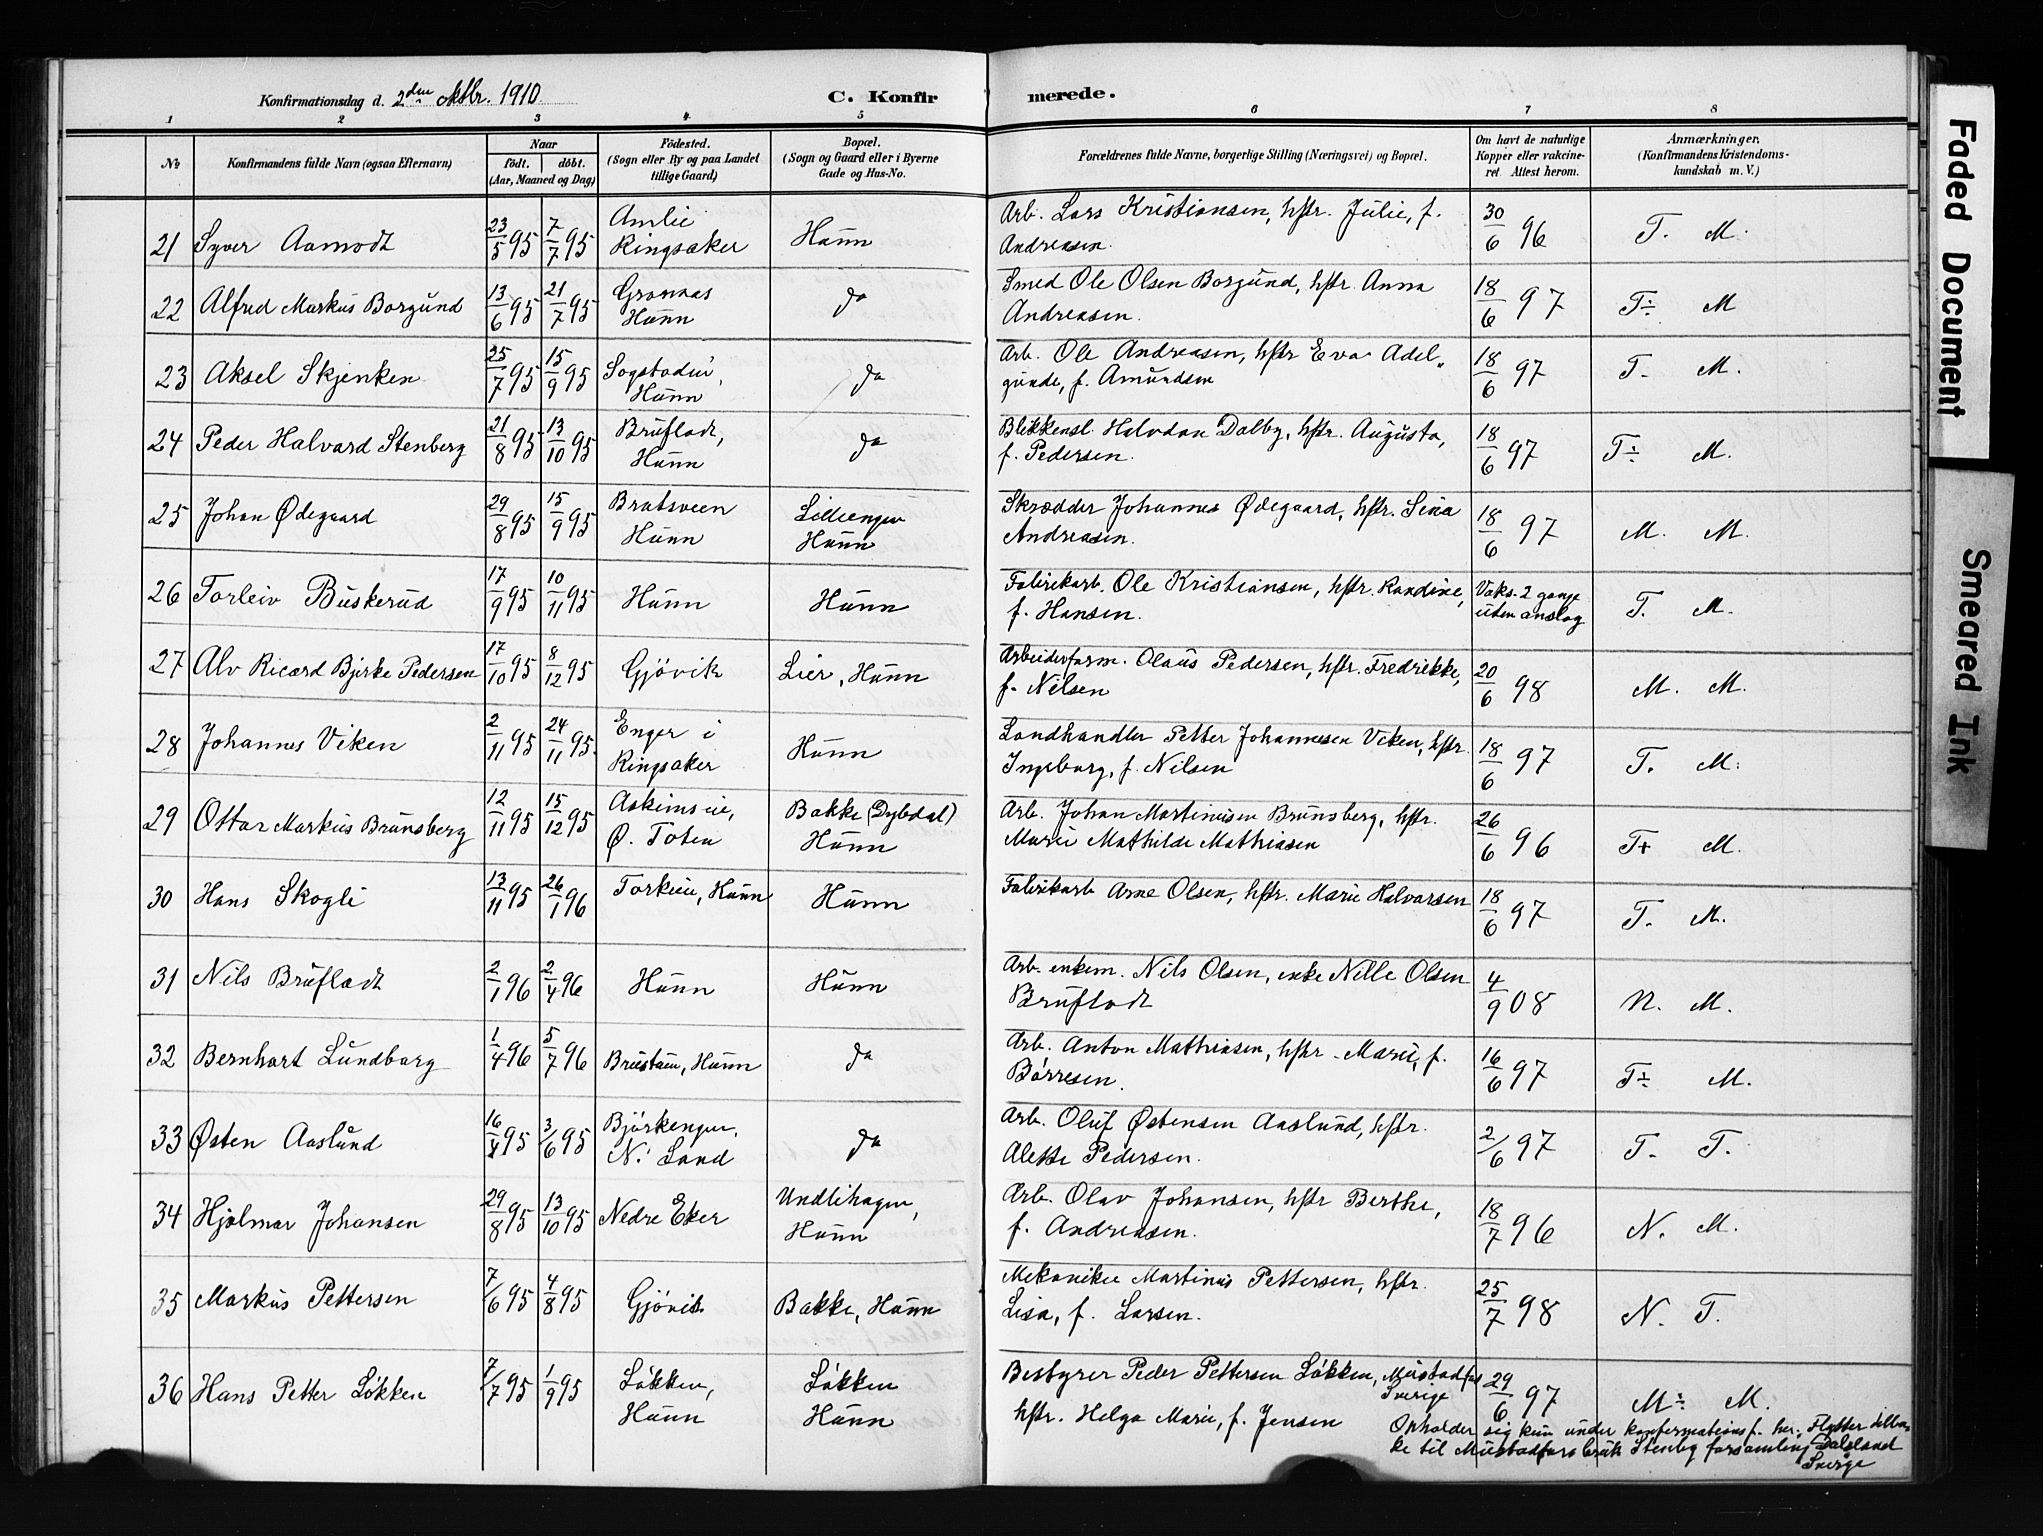 Konfirmationsdag d. 2den oktbr. 1910
C. Konfirmerede.
1 2 3 4 5 6 7 8
No
Konfirmandens fulde Navn (ogsaa Efternavn)
Naar
født. døbt.
(Aar, Maaned og Dag)
Fødested.
(Sogn eller By og paa Landet
tillige Gaard)
Bopæl.
(Sogn og Gaard eller i Byerne
Gade og Hus-No.
Forældrenes fulde Navne, borgerlige Stilling (Næringsvei) og Bopæl.
Om havt de naturlige
Kopper eller vakcine-
ret. Attest herom.
Anmærkninger,
(Konfirmandens Kristendoms-
kundskab m. V.)
21 Syver Aamodt 23/5 95 7/7 95 Amlie Ringsaker Hunn Arb. Lars Kristiansen, hstr. Julie, f. Andreasen. 30/6 96 T. M.
22 Alfred Markus Borgund 13/6 95 21/7 95 Hunn do Smed Ole Olsen Borgund, hstr. Anna Andreasen. 18/6 97 T÷ M
23 Aksel Skjenken 25/7 95 15/9 95 Sogstadei, Hunn do Arb. Ole Andreasen, hstr Eva Adelgunde, f. Amundsen 18/6 97 T. M.
24 Peder Halvard Stenberg 21/8 95 13/10 95 Brufladt, Hunn do Blikkensl. Halvdan Dalby, hstr. Augusta, f. Pedersen. 18/6 97 T÷ M.
25 Johan Ødegaard 29/8 95 15/9 95 Bratsveen Hunn Lilleengen Hunn Skrædder Johannes Ødegaard, hstr. Sina Andreasen. 18/6 97 M. M.
26 Torleiv Buskerud 17/9 95 10/11 95 Hunn Hunn Fabrikarb. Ole Kristiansen, hstr. Randine, f. Hansen. Vaks. 2 gange uten anslag T. M.
27 Alv Ricard Bjerke Pedersen 17/10 95 8/12 95 Gjövik Lier, Hunn Arbeiderform. Olaus Pedersen, hstr. Fredrikke, f. Nilsen 20/6 98 M. M.
28 Johannes Viken 2/11 95 24/11 95. Enger i Ringsaker Hunn Landhandler Petter Johannesen Viken, hstr. Ingeborg, f. Nilsen 18/6 97 T. M.
29 Ottar Markus Brunsberg 12/11 95 15/12 95 Askimseie, Ø. Toten Bakke (Dybdal) Hunn Arb. Johan Martinusen Brunsberg, hstr. Marie Mathilde Mathiasen 26/6 96 T+ M.
30 Hans Skogli 13/11 95 26/1 96 Torkeie, Hunn Hunn Fabrikarb Arne Olsen, hstr. Marie Halvorsen 18/6 97 T. M.
31 Nils Brufladt 2/1 96 2/4 96 Hunn Hunn Arb. enkem. Nils Olsen, enke Nille Olsen Brufladt 4/9 08 N. M.
32 Bernhart Lundborg 1/4 96 5/7 96 Hunn do Arb. Anton Mathiasen, hstr. Marie, f. Börresen. 16/6 97 T÷ M.
33 Østen Aaslund 16/4 95 3/6 95 Björkengen, N. Land do Arb. Oluf Østensen Aaslund, hstr. Alette Pedersen. 2/6 97 T. T.
34 Hjalmar Johansen 29/8 95 13/10 95 Nedre Eker Undlihagen, Hunn Arb. Olav Johansen, hstr Berthe, f. Andreasen. 18/7 96 N. M.
35 Markus Pettersen 7/6 95 4/8 95 Gjövik Bakke, Hunn Mekaniker Martinus Pettersen, hstr. Lisa, f. Larsen. 25/7 98 N. T.
36 Hans Petter Løkken 7/7 95 1/9 95 Løkken, Hunn Løkken Hunn Bestyrer Peder Pettersen Løkken, Mustadfors Sverige hstr. Helga Marie, f. Jensen 29/6 97 M÷ M.
Opholder sig kun under konfermationsf. her. Flytter tilba-
ke til Mustadfors bruk Stenby forsamling Dalsland
Sverige
Faded Document
Smeared Ink